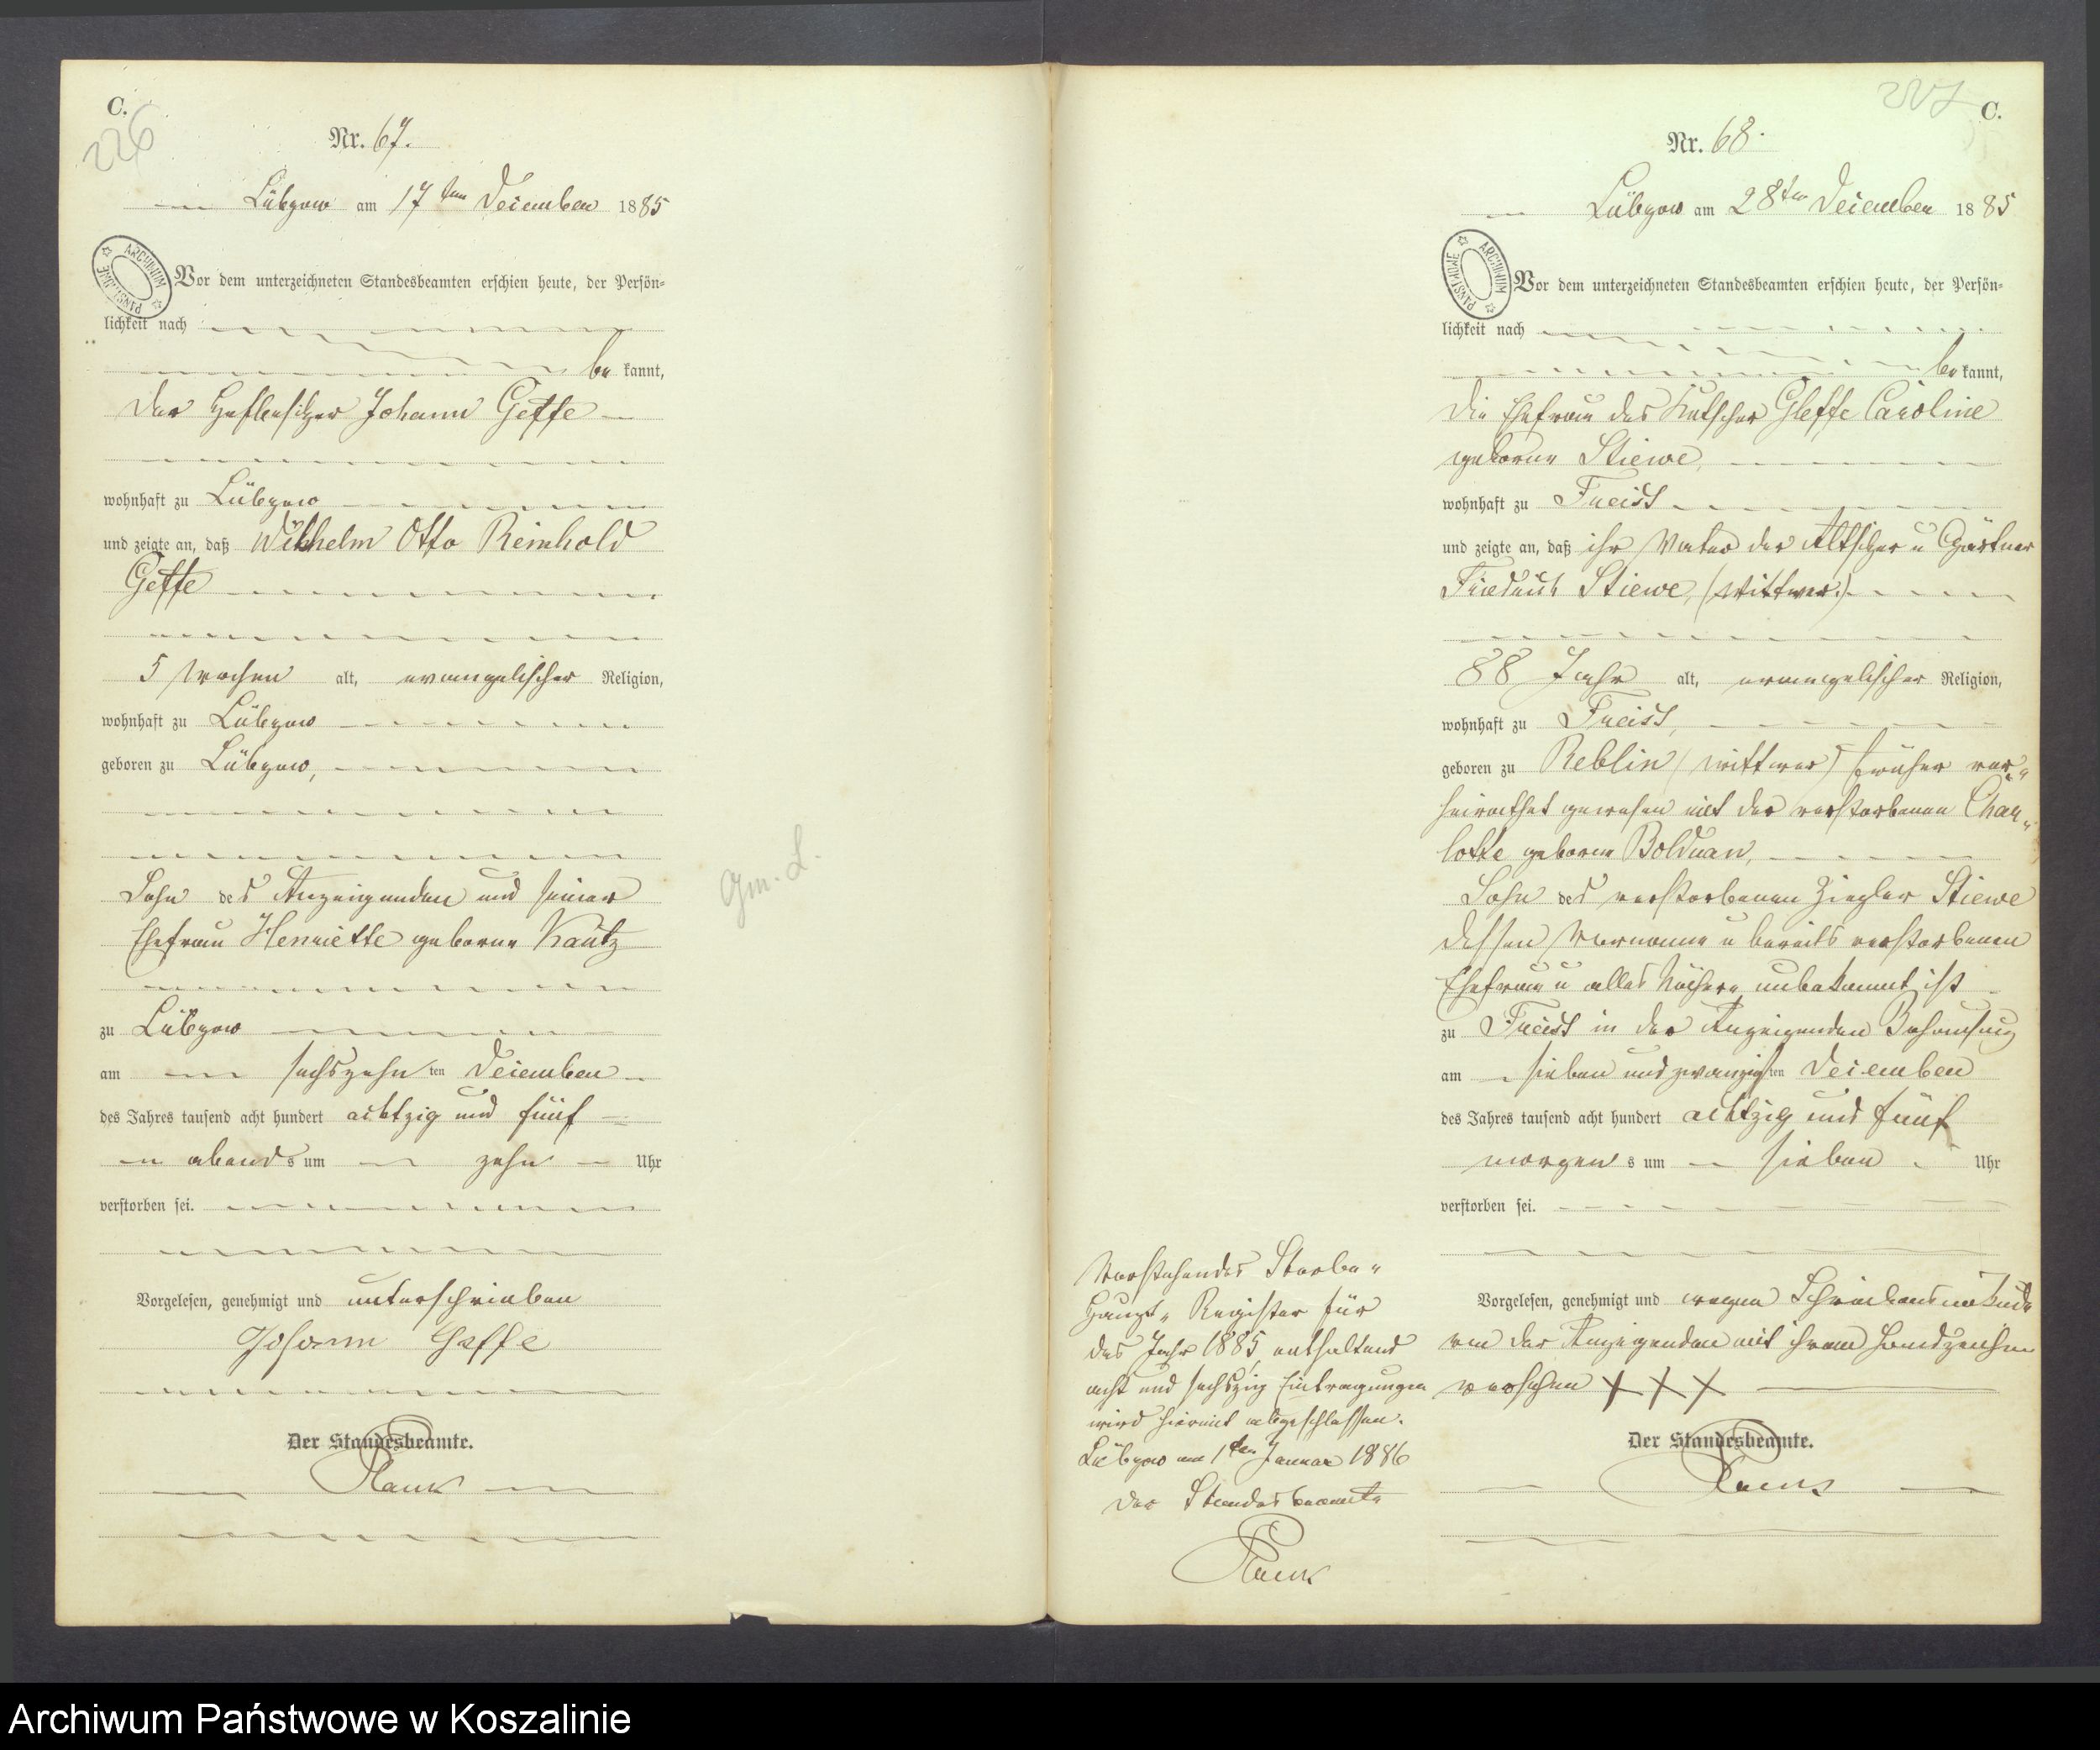 C.
226
Nr. 67.
Lübzow am 17ten December 1885
ARCHIWUM PAŃSTWOWE
Vor dem unterzeichneten Standesbeamten erschien heute, der Persön-
lichkeit nach
be kannt,
der Hofbesitzer Johann Geffe
wohnhaft zu Lübzow
und zeigte an, daß Wilhelm Otto Reinhold
Geffe
5 Wochen alt, evangelischer Religion,
wohnhaft zu Lübzow
geboren zu Lübzow,
Sohn des Anzeigenden und seiner
Ehefrau Henriette geborne Kautz
zu Lübzow
am sechszehn ten December
des Jahres tausend acht hundert achtzig und fünf
abends um zehn Uhr
verstorben sei.
Vorgelesen, genehmigt und unterschrieben
Johann Geffe
Der Standesbeamte.
Gm. L.
227
C.
Nr. 68.
Lübzow am 28ten December 1885
ARCHIWUM PAŃSTWOWE
Vor dem unterzeichneten Standesbeamten erschien heute, der Persön-
lichkeit nach
be kannt,
die Ehefrau des Kutscher Gleffe Caroline
geborne Stiewe,
wohnhaft zu Freist
und zeigte an, daß ihr Vater der Altsitzer u Gärtner
Friedrich Stiewe, (Wittwer)
88 Jahr alt, evangelischer Religion,
wohnhaft zu Freist,
geboren zu Reblin (Wittwer) früher ver-
heirathet gewesen mit der verstorbenen Char-
lotte geborne Bolduan,
Sohn des verstorbenen Ziegler Stiewe
dessen Vorname u bereits verstorbenen
Ehefrau u alles Nähere unbekannt ist
zu Freist in der Anzeigenden Behausung
am sieben und zwanzigsten December
des Jahres tausend acht hundert achtzig und fünf
morgens um sieben Uhr
verstorben sei.
Vorgelesen, genehmigt und wegen Schreibensunkunde
von der Anzeigenden mit ihrem Handzeichen
versehen + + +
Der Standesbeamte.
Vorstehendes Sterbe-
Haupt-Register für
das Jahr 1885 enthaltend
acht und sechszig Eintragungen
wird hiermit abgeschlossen.
Lübzow am 1ten Januar 1886
Der Standesbeamte
Archiwum Państwowe w Koszalinie